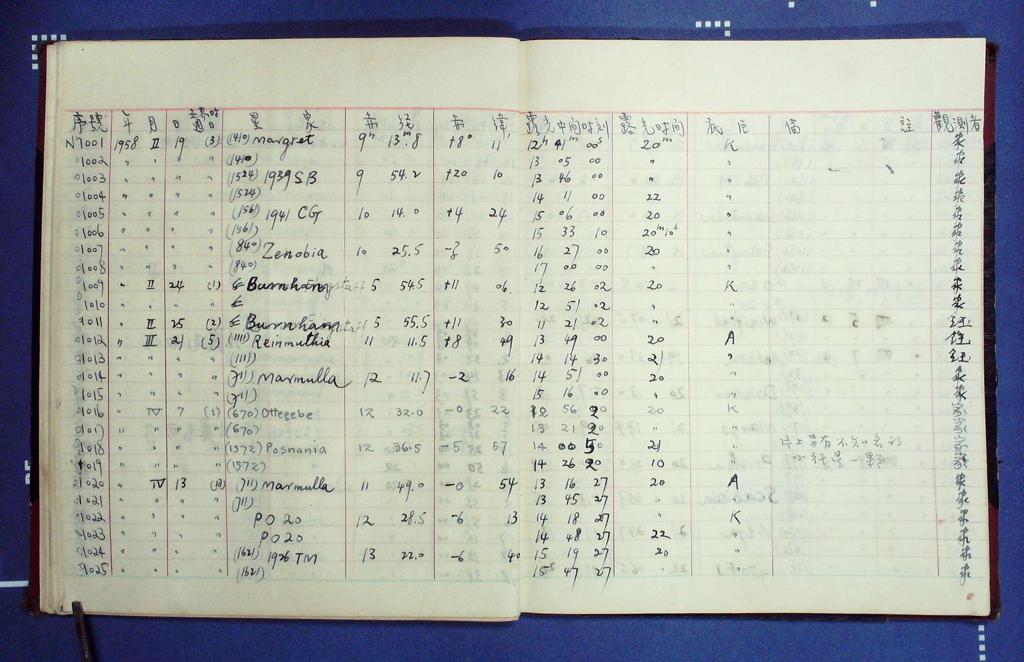 序號 年 月 日 世界時 週日 星 象 赤 経 赤 緯 露光中间时刻 露光时间 底片 備 註 觀測者
N7001 1958 II 19 (3) (1410) margret 9h 13m.8 +8° 11' 12h 41m 00s 20m K
01002 " " " " (1410) 13 05 00 "  "
01003 " " " " (1524) 1939 SB 9 54.2 +20 10 13 46 00 " "
01004 " " " " (1524) 14 11 00 22 "
01005 " " " " (1561) 1941 CG 10 14.0 +4 24 15 06 00 20 "
01006 " " " " (1561) 15 33 10 20m10s "
01007 " " " " (840) Zenobia 10 25.5 -3 50 16 27 00 20 "
01008 " " " " (840) 17 00 00 " "
01009 " II 24 (1) Burnham 5 54.5 +11 06. 12 26 02 20 K
01010 " " " " 12 51 02 " "
9011 " II 25 (2) Burnham 5 55.5 +11 30 11 21 02 " "
01012 " III 21 (5) (1111) Reinmuthia 11 11.5 +8 49 13 49 00 20 A
01013 " " " " (1111) 14 14 30 21 "
01014 " " " " (711) Marmulla 12 11.7 -2 16 14 51 00 20 "
01015 " " " " (711) 15 16 00 " "
01016 " IV 7 (1) (670) Ottegebe 12 32.0 -0 22 12 56 20 20 K
01017 " " " " (670) 13 21 20 " "
01018 " " " " (1572) Posnania 12 36.5 -5 57 14 00 50 21 " 片上另有不知名的
01019 " " " " (1572) 14 26 20 10 " 小行星一颗
01020 " IV 13 (711) Marmulla 11 49.0 -0 54 13 16 27 20 A
01021 " " " " (711) 13 45 27 " "
01022 " " " " PO 20 12 28.5 -6 13 14 18 27 " K
01023 " " " " PO 20 14 48 27 22 "
01024 " " " " (1621) 1926 TM 13 22.0 -6 40 15 19 27 20 "
01025 " " " " (1621) 15 47 27 " "